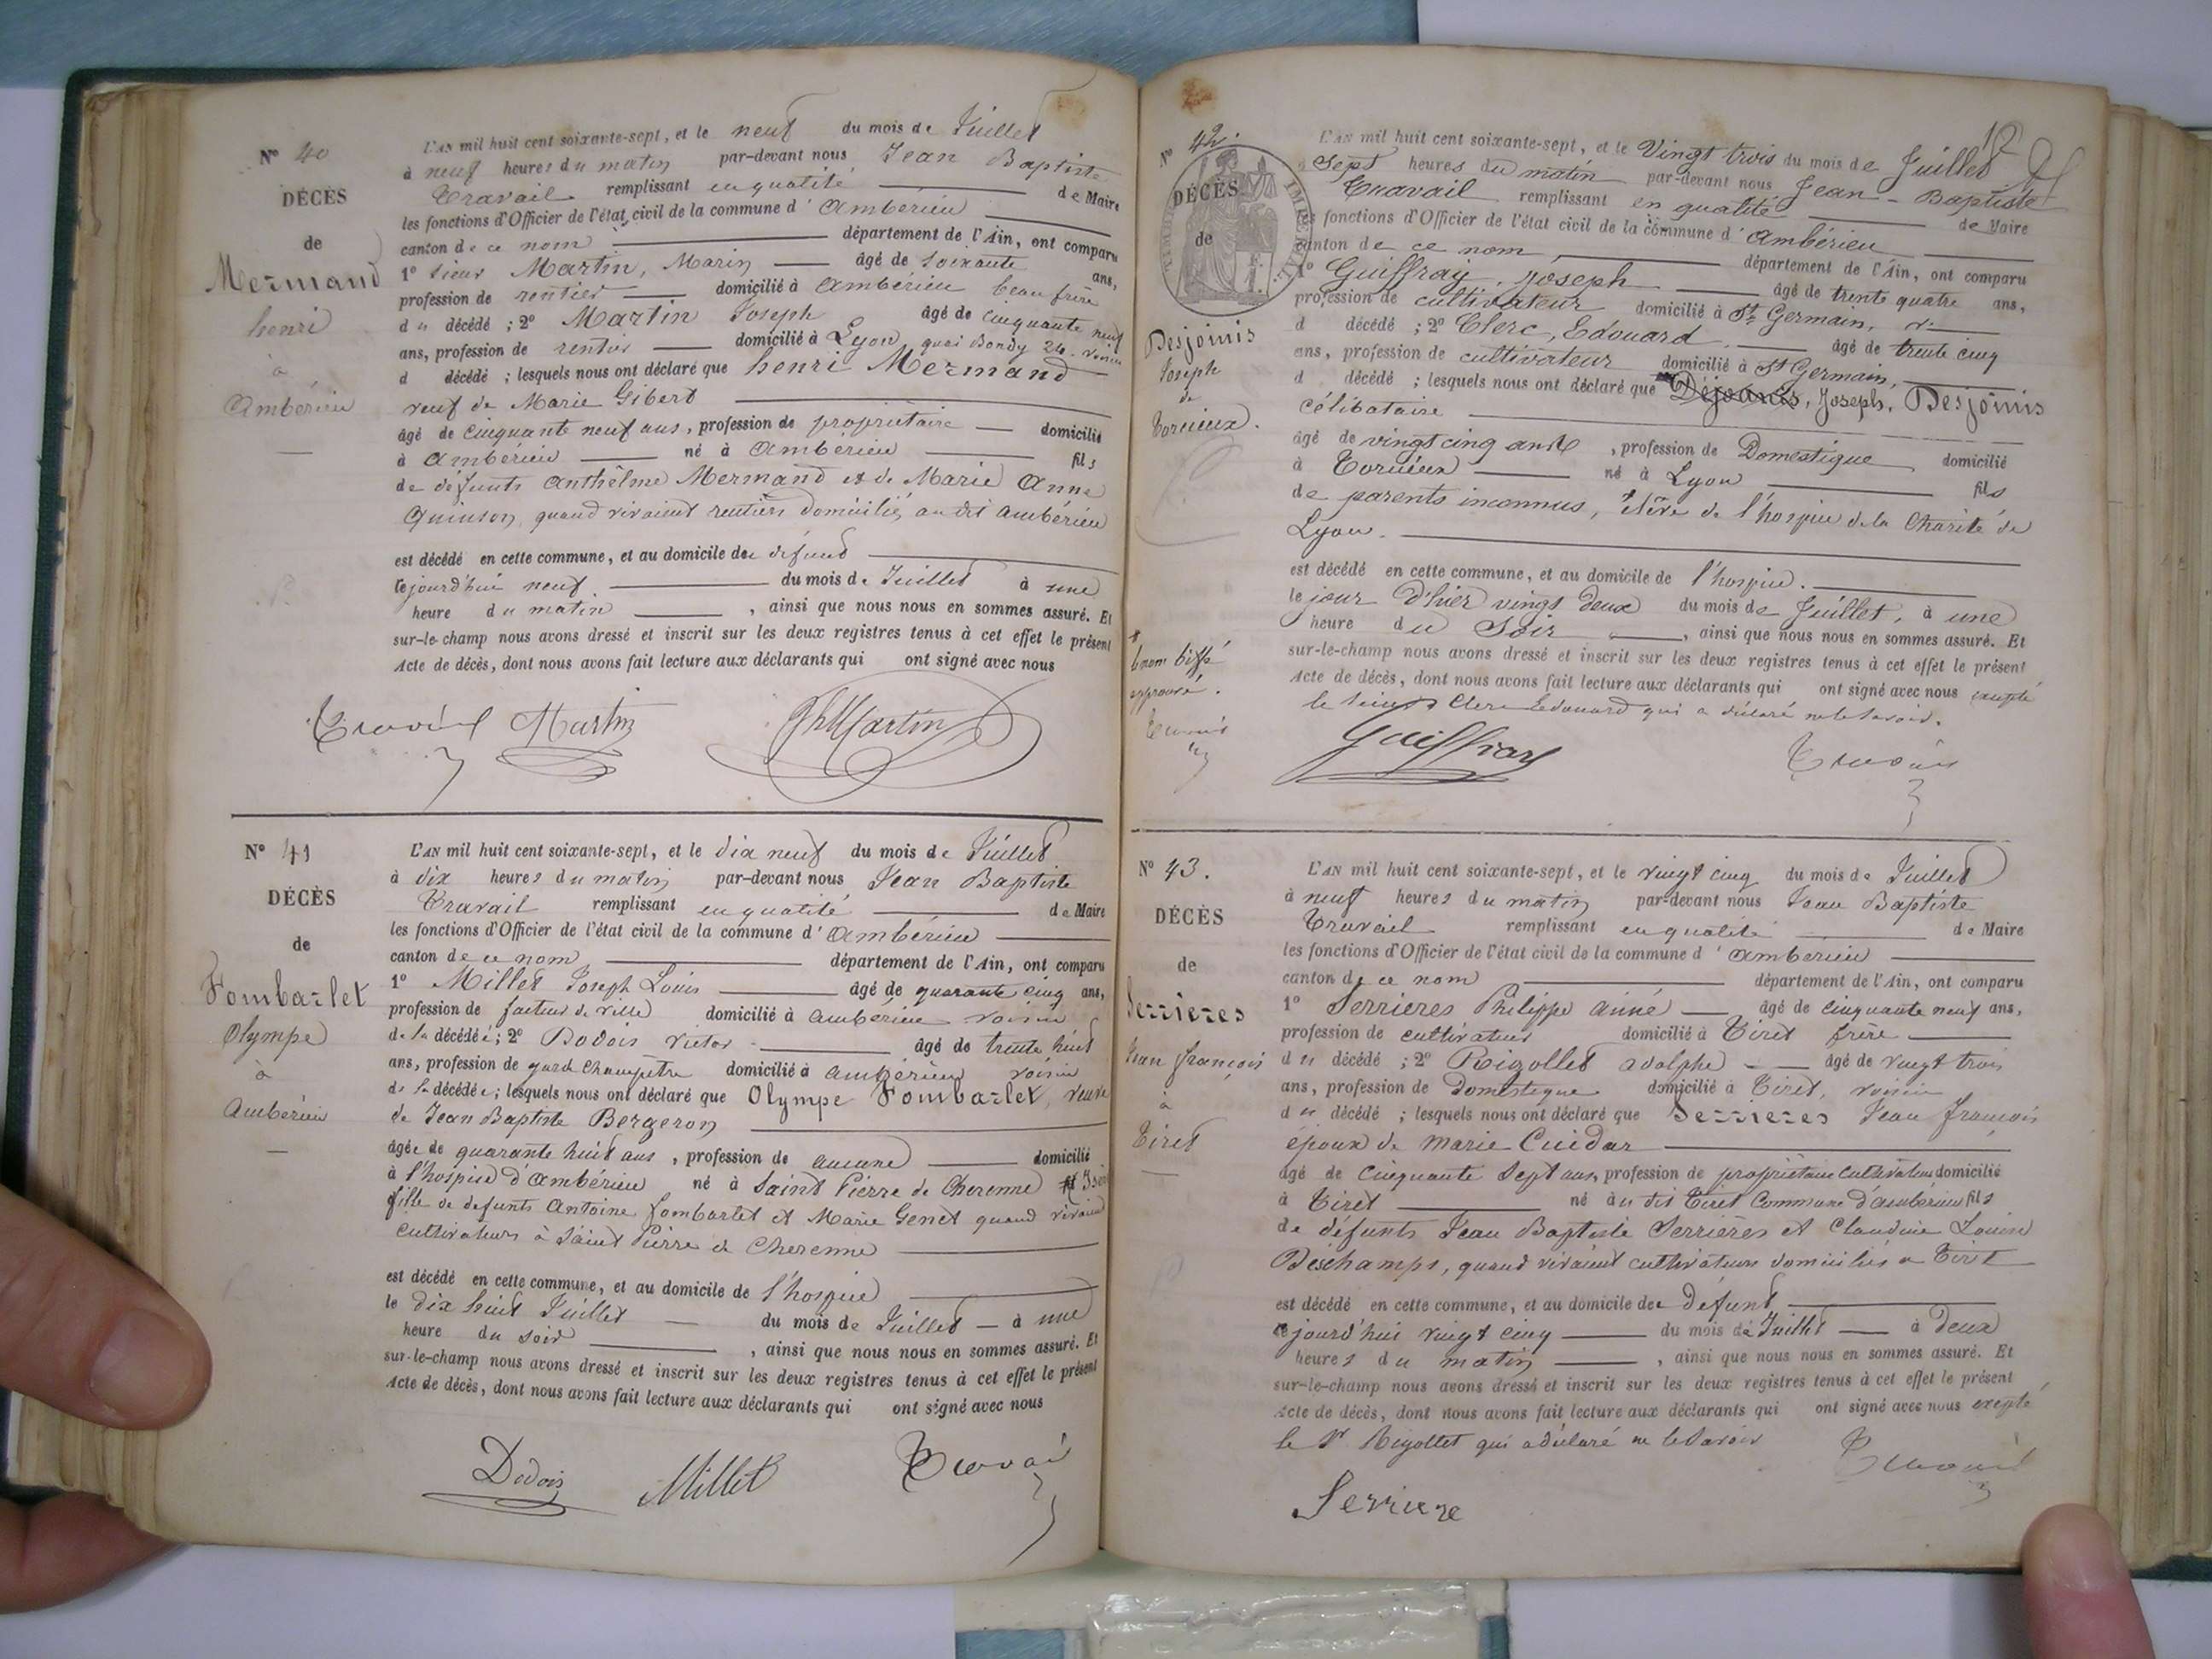 N° 40
DÉCÈS
de
Mermand
henri
à
Ambérieu
L'AN mil huit cent soixante-sept, et le neuf du mois de Juillet
à neuf heures du matin par-devant nous Jean Baptiste
Travail remplissant en qualité de Maire
les fonctions d'Officier de l'état civil de la commune d'Ambérieu
canton de ce nom département de l'Ain, ont comparu
1° Sieur Martin, Marin âgé de soixante ans,
profession de rentier domicilié à Ambérieu beau frère
du décédé ; 2° Martin Joseph âgé de cinquante neuf
ans, profession de rentier domicilié à Lyon, quai Bondy 24. voisin
d décédé ; lesquels nous ont déclaré que henri Mermand
veuf de Marie Gibert
âgé de cinquante neuf ans, profession de propriétaire domicilié
à Ambérieu né à Ambérieu fils
de défunts Anthelme Mermand et de Marie Anne
Quinson, quand vivaient rentiers domiciliés au dit Ambérieu
est décédé en cette commune, et au domicile du défunt
cejourd'hui neuf du mois de Juillet à une
heure du matin, ainsi que nous nous en sommes assuré. Et
sur-le-champ nous avons dressé et inscrit sur les deux registres tenus à cet effet le présent
Acte de décès, dont nous avons fait lecture aux déclarants qui ont signé avec nous
Travail Martin Jh Martin
N° 41
DÉCÈS
de
Fombarlet
Olympe
à
Ambérieu
L'AN mil huit cent soixante-sept, et le dix neuf du mois de Juillet
à dix heures du matin par-devant nous Jean Baptiste
Travail remplissant en qualité de Maire
les fonctions d'Officier de l'état civil de la commune d'Ambérieu
canton de ce nom département de l'Ain, ont comparu
1° Millet Joseph Louis âgé de quarante cinq ans,
profession de facteur de ville domicilié à Ambérieu voisin
de la décédée ; 2° Dodois Victor âgé de trente huit
ans, profession de garde champêtre domicilié à Ambérieu voisin
de la décédée ; lesquels nous ont déclaré que Olympe Fombarlet, veuve
de Jean Baptiste Bergeron
âgée de quarante huit ans, profession de aucune domicilié
à l'hospice d'Ambérieu né à Saint Pierre de Cherenne Isère
fille de defunts Antoine Fombarlet et Marie Genet quand vivaient
cultivateurs à Saint Pierre de Cherenne
est décédé en cette commune, et au domicile de l'hospice
le dix huit Juillet du mois de Juillet à une
heure du soir, ainsi que nous nous en sommes assuré. Et
sur-le-champ nous avons dressé et inscrit sur les deux registres tenus à cet effet le présent
Acte de décès, dont nous avons fait lecture aux déclarants qui ont signé avec nous
Dodois Millet Travail
12
N° 42.
DÉCÈS
de
TIMBRE IMPERIAL
Desjoinis
Joseph
de
Torcieux.
L'AN mil huit cent soixante-sept, et le Vingt trois du mois de Juillet
à Sept heures du matin par-devant nous Jean-Baptiste
Travail remplissant en qualité de Maire
les fonctions d'Officier de l'état civil de la commune d'Ambérieu
canton de ce nom, département de l'Ain, ont comparu
1° Guiffray, Joseph âgé de trente quatre ans,
profession de cultivateur domicilié à St Germain,
d décédé ; 2° Clerc, Edouard âgé de trente cinq
ans, profession de cultivateur domicilié à St Germain,
d décédé ; lesquels nous ont déclaré que Déjoanis, Joseph, Desjoinis
célibataire
âgé de vingt cinq ans, profession de Domestique domicilié
à Torcieux né à Lyon fils
de parents inconnus, élève de l'hospice de la Charité de
Lyon.
est décédé en cette commune, et au domicile de l'hospice.
le jour d'hier vingt deux du mois de Juillet, à une
heure du Soir, ainsi que nous nous en sommes assuré. Et
sur-le-champ nous avons dressé et inscrit sur les deux registres tenus à cet effet le présent
Acte de décès, dont nous avons fait lecture aux déclarants qui ont signé avec nous excepté
le Sieur Clerc Edouard qui a déclaré ne le savoir.
nom biffé
approuvé.
Travail
Guiffray Travail
N° 43.
DÉCÈS
de
Serrieres
Jean françois
à
Tiret
L'AN mil huit cent soixante-sept, et le vingt cinq du mois de Juillet
à neuf heures du matin par-devant nous Jean Baptiste
Travail remplissant en qualité de Maire
les fonctions d'Officier de l'état civil de la commune d'Ambérieu
canton de ce nom département de l'Ain, ont comparu
1° Serrieres Philippe ainé âgé de cinquante neuf ans,
profession de cultivateur domicilié à Tiret frère
du décédé ; 2° Rigollet Adolphe âgé de vingt trois
ans, profession de Domestique domicilié à Tiret, voisin
du décédé ; lesquels nous ont déclaré que Serrieres Jean François
époux de Marie Cuidar
âgé de cinquante sept ans, profession de propriétaire cultivateur domicilié
à Tiret né au dit Tiret Commune d'Ambérieu fils
de défunts Jean Baptiste Serrières et Claudine Louise
Deschamps, quand vivaient cultivateurs domiciliés à Tiret
est décédé en cette commune, et au domicile du défunt
cejourd'hui vingt cinq du mois de Juillet à deux
heures du matin, ainsi que nous nous en sommes assuré. Et
sur-le-champ nous avons dressé et inscrit sur les deux registres tenus à cet effet le présent
Acte de décès, dont nous avons fait lecture aux déclarants qui ont signé avec nous excepté
le Sr Rigollet qui a déclaré ne le savoir
Travail
Serriere